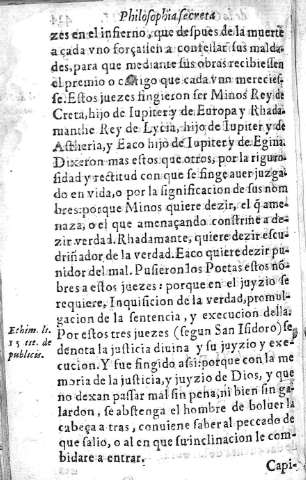 Philosophia secreta
zes en el infierno, que despues de la muerte
a cada vno forçassen a confessar sus malda-
des, para que mediante sus obras recibiessen
el premio o castigo que cada vno merecies-
se. Estos juezes fingieron ser Minos Rey de
Creta, hijo de Iupiter y de Europa y Rhada-
manthe Rey de Lycia, hijo de Iupiter y de
Astheria, y Eaco hijo de Iupiter y de Egina.
Dixeron mas estos que otros, por la riguro-
sidad y rectitud con que se finge auer juzga-
do en vida, o por la significacion de sus nom
bres: porque Minos quiere dezir, el q̃ ame-
naza, o el que amenaçando constriñe a de-
zir verdad. Rhadamante, quiere dezir escu-
driñador de la verdad. Eaco quiere dezir pu-
nidor del mal. Pusieron los Poetas estos nõ-
bres a estos juezes: porque en el juyzio se
requiere, Inquisicion de la verdad, promul-
gacion de la sentencia, y execucion della.
Ethim. li.
15 tit. de
publicis.
Por estos tres juezes (segun San Isidoro) se
denota la justicia diuina y su juyzio y exe-
cucion. Y fue fingido assi: porque con la me
moria de la justicia, y juyzio de Dios, y que
no dexan passar mal sin pena, ni bien sin ga-
lardon, se abstenga el hombre de boluer la
cabeça a tras, conuiene saber al peccado de
que salio, o al en que su inclinacion le com-
bidare a entrar.
Capi-